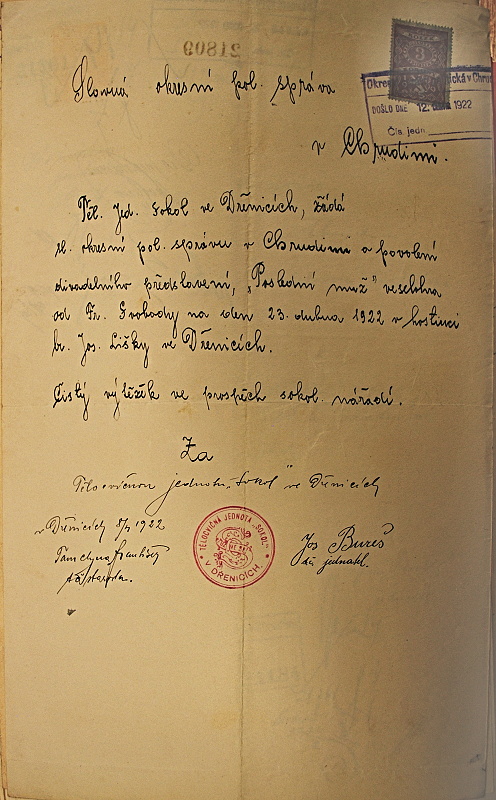 21809
Slavná okresní pol. správa
DOŠLO DNE 12. 1922
Čís. jedn.
v Chrudimi.
Těl. Jed. Sokol ve Dřenicích, žádá
sl. okresní pol. správu v Chrudimi o povolení
divadelního představení, „Poslední muž" veselohra
od Fr. Svobody na den 23. dubna 1922 v hostinci
br. Jos. Lišky ve Dřenicích.
Čistý výtěžek ve prospěch sokol. nářadí.
Za
Tělocvičnou jednotu „Sokol" ve Dřenicích
v Dřenicích 1922
t.č. starosta.
TĚLOCVIČNÁ JEDNOTA „SOKOL"
V DŘENICÍCH.
Jos Bureš
t.č. jednatel.